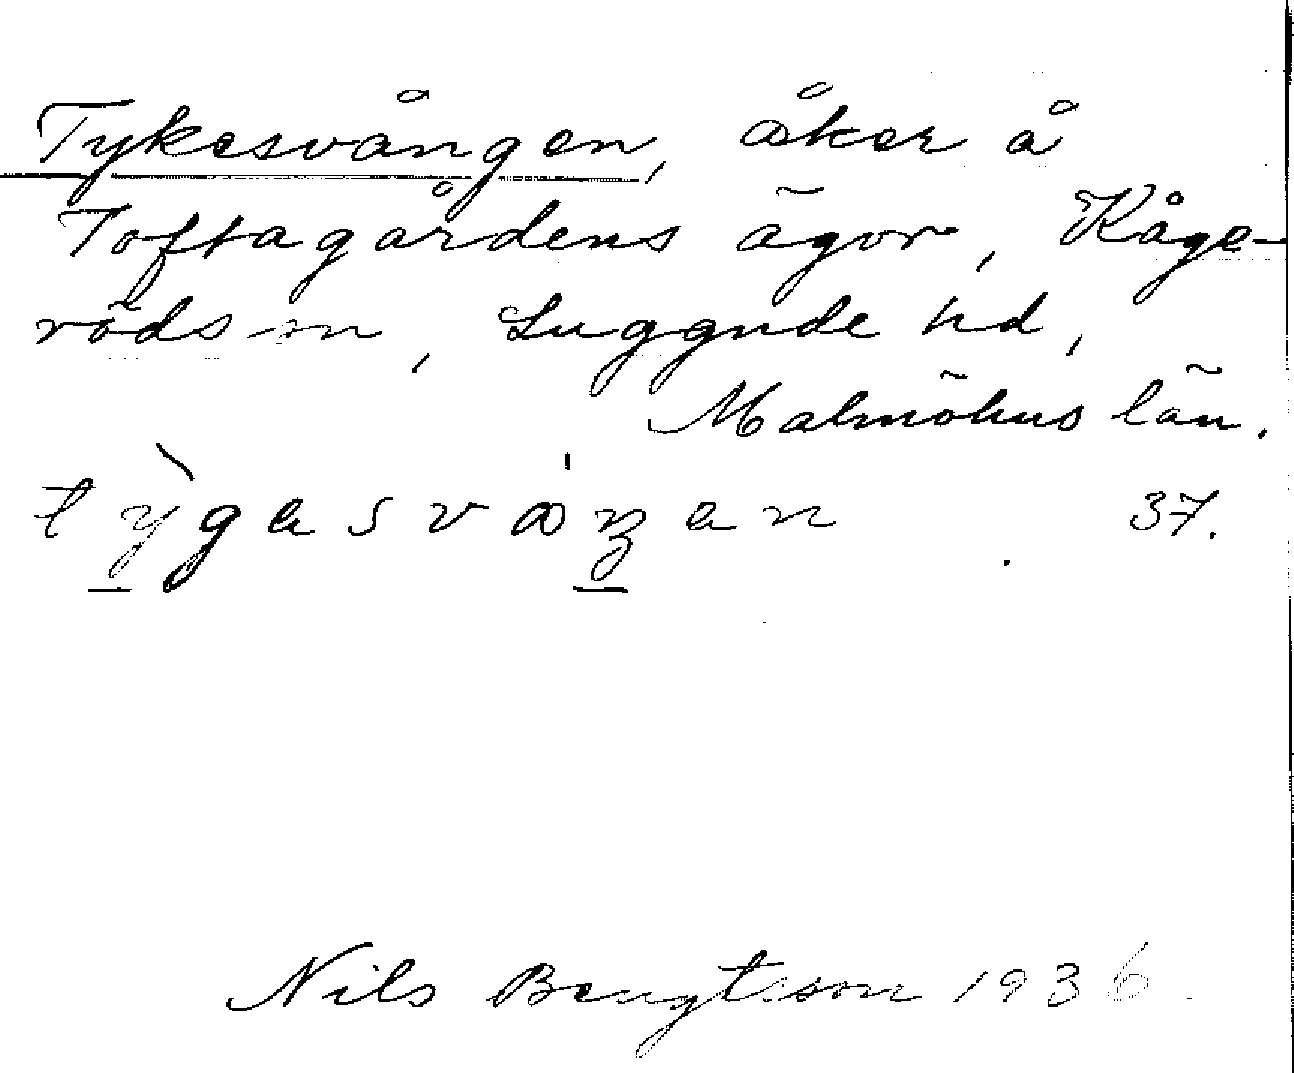 Tykesvången, åker å
Toftagårdens ägor, Kåge-
röds sn, Luggude hd,
Malmöhus län.
tỳgesvaŋen 37.
Nils Bengtsson 1936.